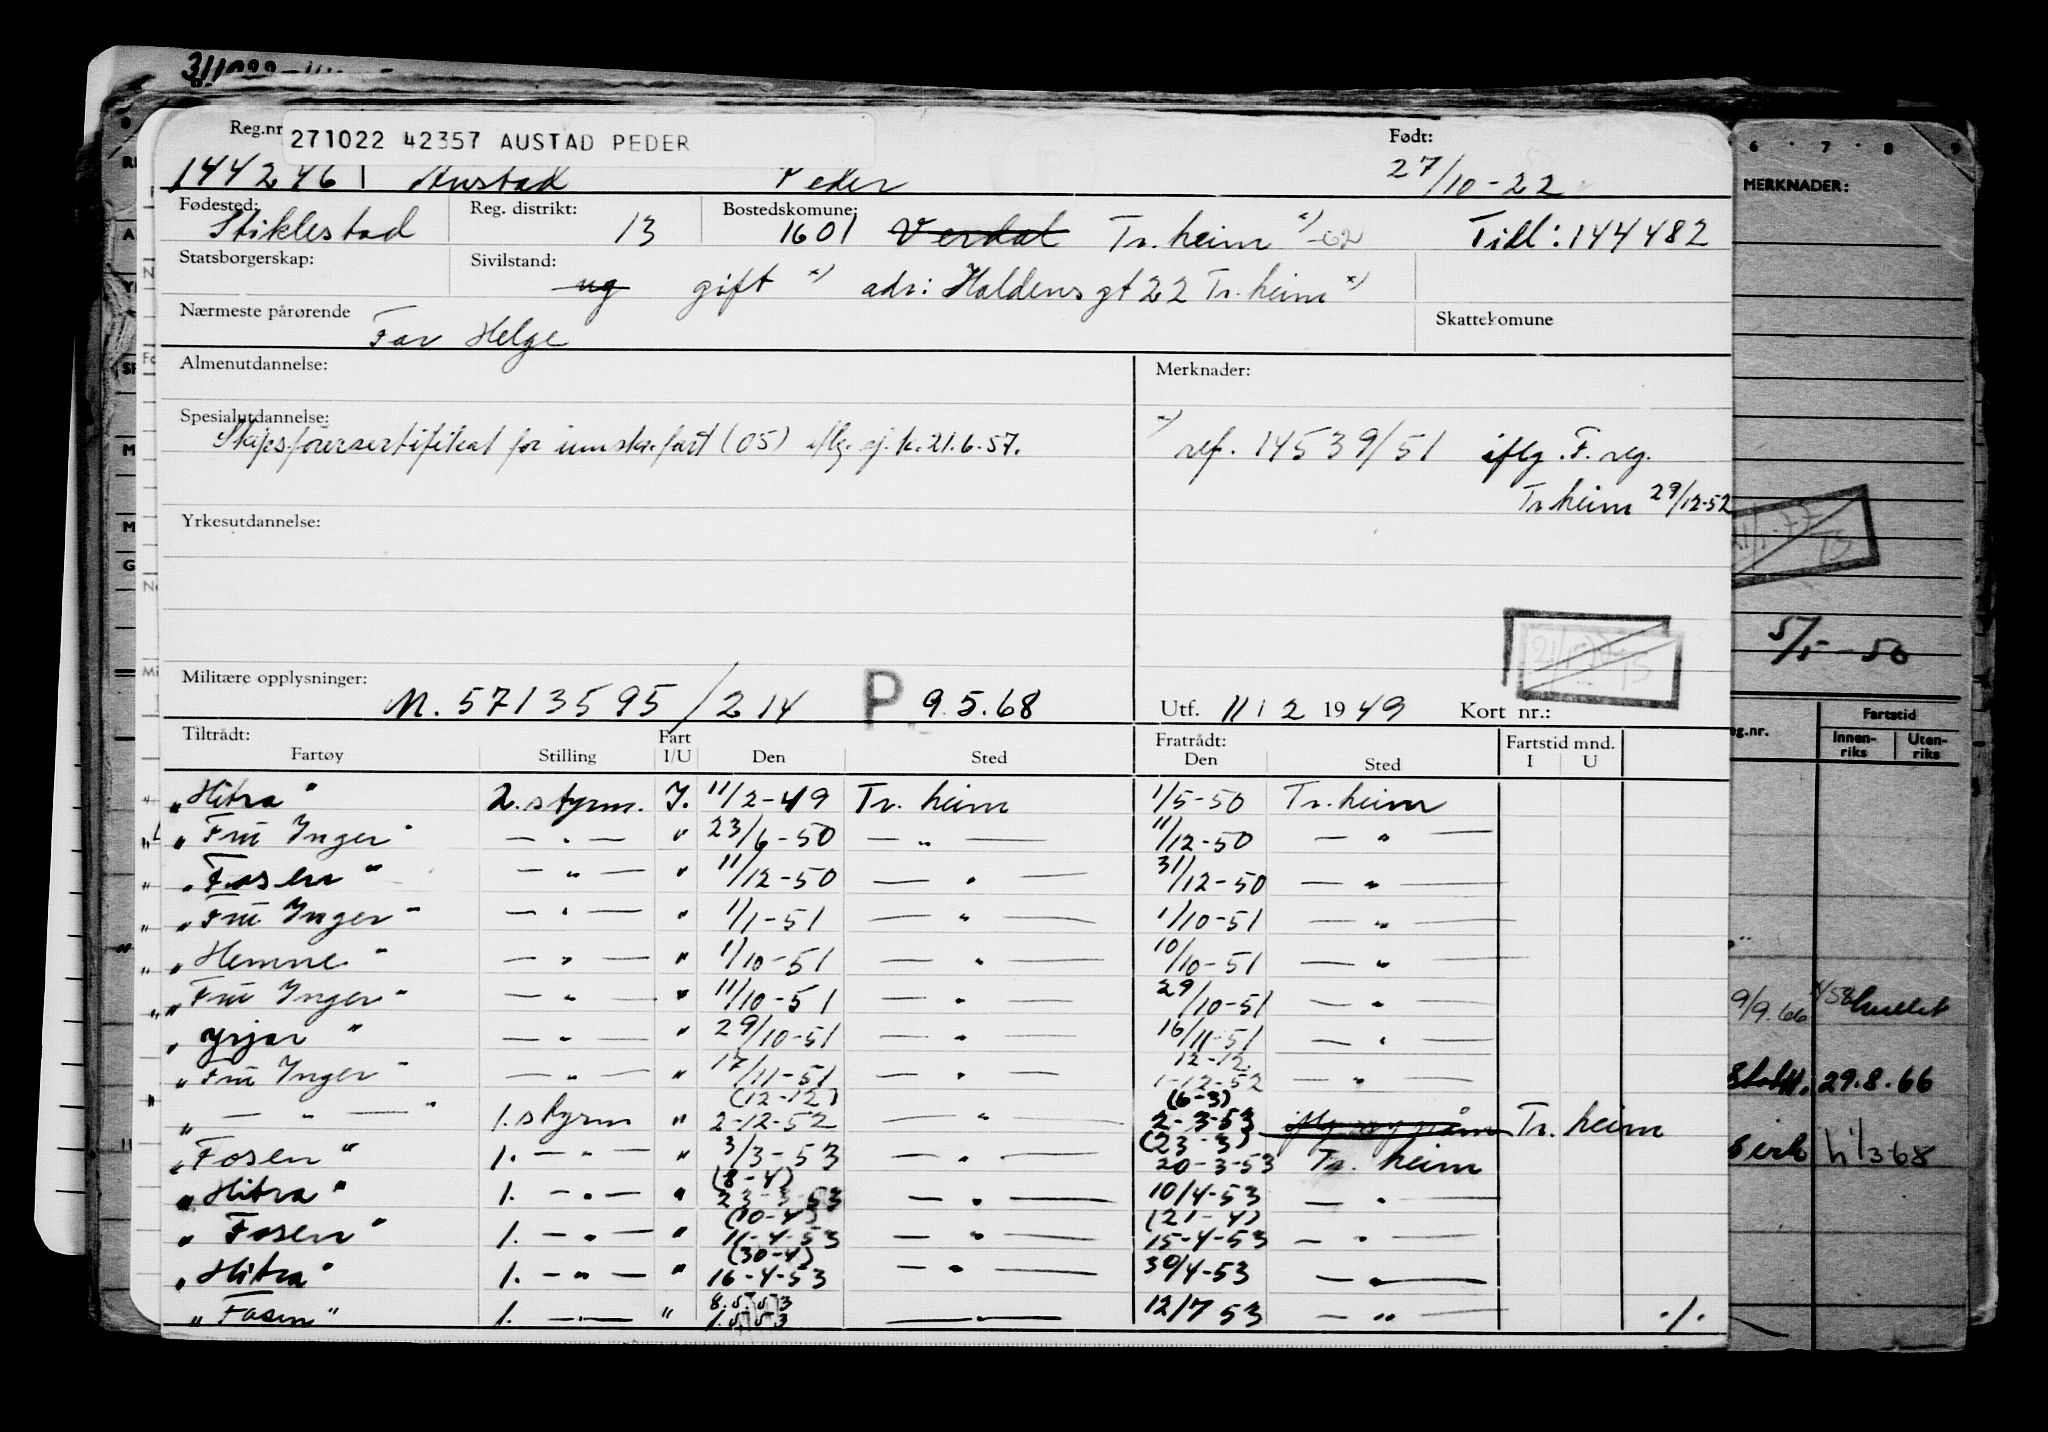 271022 42357 AUSTAD PEDER
Reg.nr Født:
1442461 Austad Peder 27/10-22
Fødested: Reg. distrikt: Bostedskomune:
Stiklestad 13 1601 Verdal Tr.heim x) -62 Till: 144482
Statsborgerskap: Sivilstand:
ug gift x) adr: Haldensgt 22 Tr.heim x)
Nærmeste pårørende Skattekomune
Far Helge
Almenutdannelse: Merknader:
Spesialutdannelse:
Skipsførersertifikat for innskr.fart (05) iflg. sj.k. 21.6.57.
x) ref. 14539/51 iflg. F. reg.
Tr.heim 29/12-52
Yrkesutdannelse:
Militære opplysninger:
M. 5713595/214 P 9.5.68 Utf. 11/2 1949 Kort nr.:
Tiltrådt: Fart Fratrådt: Fartstid mnd.
Fartøy Stilling I/U Den Sted Den Sted I U
"Hitra" 2. styrm. I. 11/2-49 Tr. heim 1/5-50 Tr. heim
"Fru Inger" — " — " 23/6-50 — " — 11/12-50 — " —
"Fosen" — " — " 11/12-50 — " — 31/12-50 — " —
"Fru Inger" — " — " 1/1-51 — " — 1/10-51 — " —
"Hemne" — " — " 1/10-51 — " — 10/10-51 — " —
"Fru Inger" — " — " 11/10-51 — " — 29/10-51 — " —
"Yrjar" — " — " 29/10-51 — " — 16/11-51 — " —
12-12
"Fru Inger" — " — " 17/11-51 — " — 1-12-52 — " —
(12-12) (6-3)
" — " — " 1. styrm " 2-12-52 — " — 2-3-53 Tr. heim
(23-3)
"Fosen" 1. — " — " 3/3-53 — " — 20-3-53 Tr. heim
(8-4)
"Hitra" 1. — " — " 23-3-53 — " — 10/4-53 — " —
(10-4) (21-4)
"Fosen" 1. — " — " 11-4-53 — " — 15-4-53 — " —
(30-4)
"Hitra" 1. — " — " 16-4-53 — " — 30/4-53 — " —
8.5.53
"Fosen" 1. — " — " 1.5.53 — " — 12/7 53 — " — ./.
6 7 8 9
MERKNADER:
5/5-50
Fartstid
g.nr. Innen-riks Uten-riks
9/9.66
29.8.66